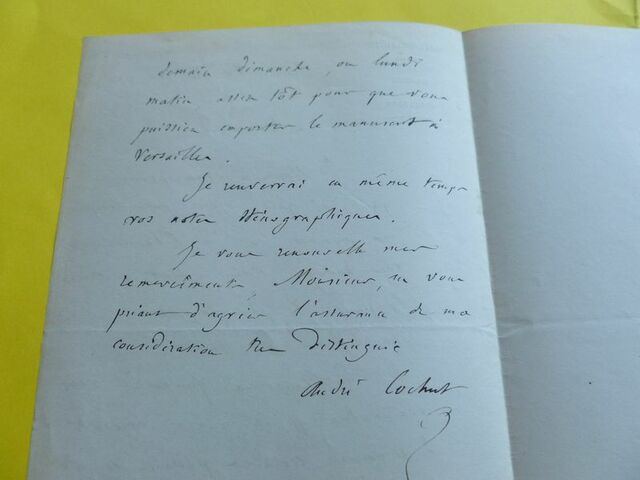 demain dimanche, ou lundi
matin assez tôt pour que vous
puissiez emporter le manuscrit à
Versailles.
Je renverrai en même temps
vos notes sténographiques.
Je vous renouvelle mes
remerciments, Monsieur, en vous
priant d'agréer l'assurance de ma
considération très distinguée
André Cochut